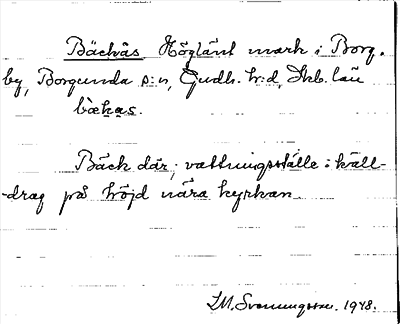 Bäckås Höglänt mark i Borg-
by, Borgunda s:n, Gudh. h:d, Skb. län
bækas.
Bäck där; vattningsställe i käll-
-drag på höjd nära kyrkan
I.M. Svenungsson. 1948.